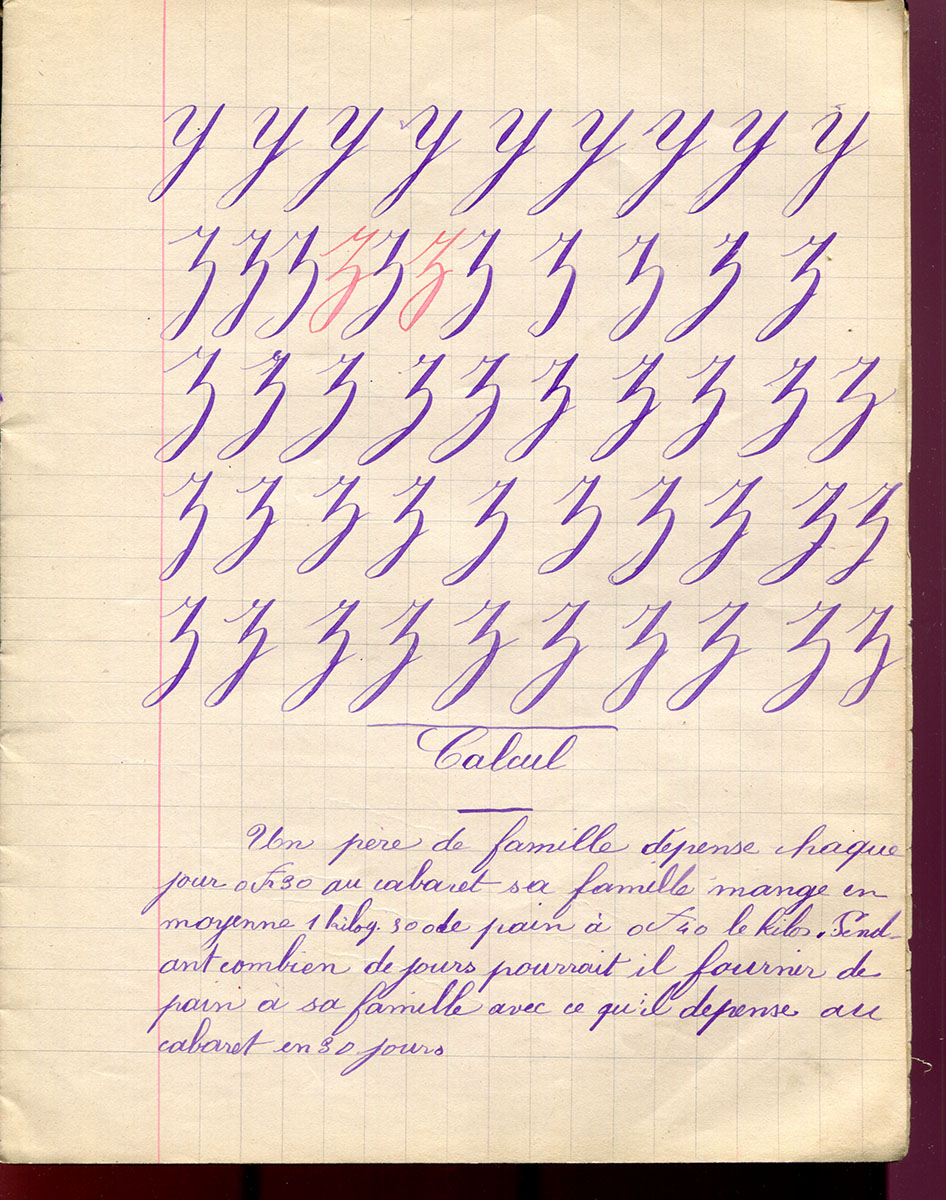 y y y y y y y y y
z z z z z z z z z z z
z z z z z z z z z z
z z z z z z z z z z
z z z z z z z z z z
Calcul
Un père de famille dépense chaque
jour 0Fr30 au cabaret sa famille mange en
moyenne 1 kilog. 500 de pain à 0F40 le kilos. Pend-
ant combien de jours pourrait il fournir de
pain à sa famille avec ce qu'il depense au
cabaret en 30 jours